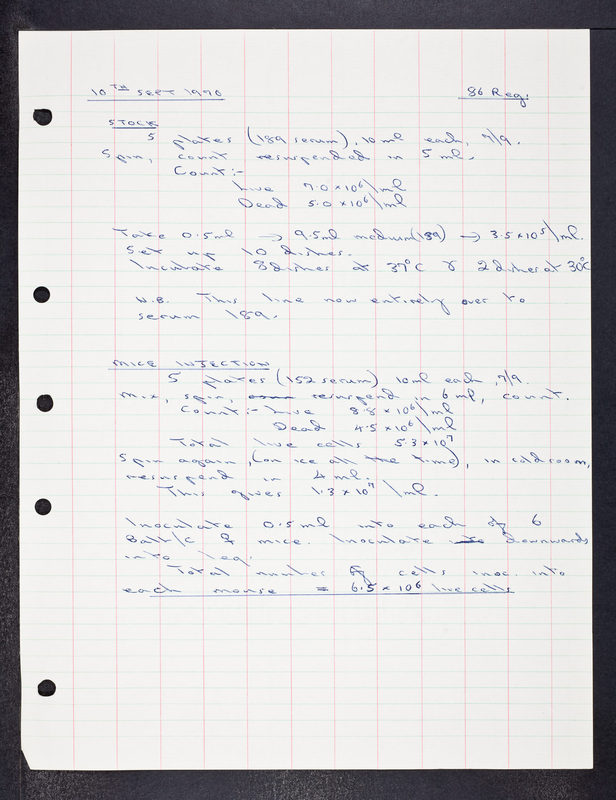 10TH SEPT 1970 86 Reg:
STOCK
5 plates (189 serum), 10 ml each, 7/9.
Spin, count resuspended in 5 ml.
Count:-
Live 7.0 x 10⁶/ml
Dead 5.0 x 10⁶/ml
Take 0.5ml → 9.5ml medium (189) → 3.5 x 10⁵/ml.
Set up 10 dishes.
Incubate 8 dishes at 37°C & 2 dishes at 30°C
N.B. This line now entirely over to
serum 189.
MICE INJECTION
5 plates (152 serum) 10ml each, 7/9.
Mix, spin, resuspend in 6 ml, count.
Count:- Live 8.8 x 10⁶/ml
Dead 4.5 x 10⁶/ml
Total live cells 5.3 x 10⁷
Spin again, (on ice all the time), in cold room,
resuspend in 4 ml.
This gives 1.3 x 10⁷/ml.
Inoculate 0.5 ml into each of 6
Balb/c mice. Inoculate downwards
into leg.
Total number of cells inoc. into
each mouse = 6.5 x 10⁶ live cells